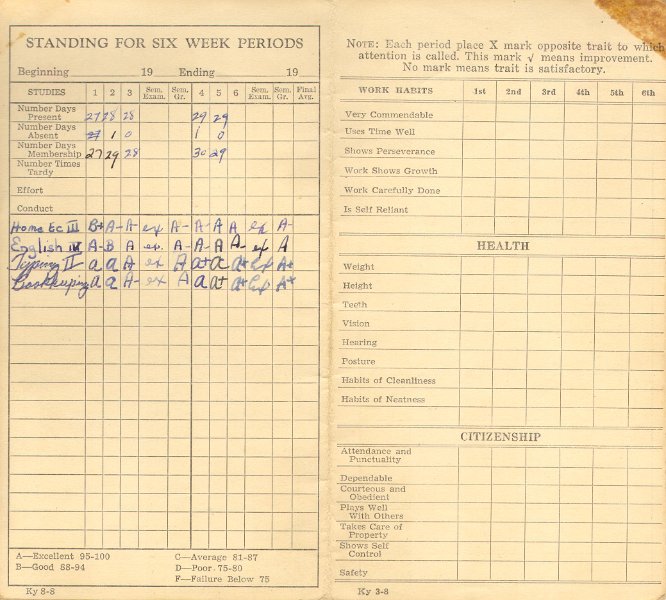 STANDING FOR SIX WEEK PERIODS
Beginning 19 Ending 19
STUDIES 1 2 3 Sem. Exam. Sem. Gr. 4 5 6 Sem. Exam. Sem. Gr. Final Avg.
Number Days Present 27 28 28 29 29
Number Days Absent 1 0 1 0
Number Days Membership 27 29 28 30 29
Number Times Tardy
Effort
Conduct
Home Ec III B+ A- A- ex A- A- A A ex A-
English IV A- B A ex. A- A A A- ex A
Typing II a a A ex A a+ a a+ Ex A+
Bookkeeping a a A- ex A a a+ a+ Ex A+
A—Excellent 95-100 C—Average 81-87
B—Good 88-94 D—Poor 75-80
F—Failure Below 75
Ky 3-8
NOTE: Each period place X mark opposite trait to which
attention is called. This mark √ means improvement.
No mark means trait is satisfactory.
WORK HABITS 1st 2nd 3rd 4th 5th 6th
Very Commendable
Uses Time Well
Shows Perseverance
Work Shows Growth
Work Carefully Done
Is Self Reliant
HEALTH
Weight
Height
Teeth
Vision
Hearing
Posture
Habits of Cleanliness
Habits of Neatness
CITIZENSHIP
Attendance and
Punctuality
Dependable
Courteous and
Obedient
Plays Well
With Others
Takes Care of
Property
Shows Self
Control
Safety
Ky 3-8